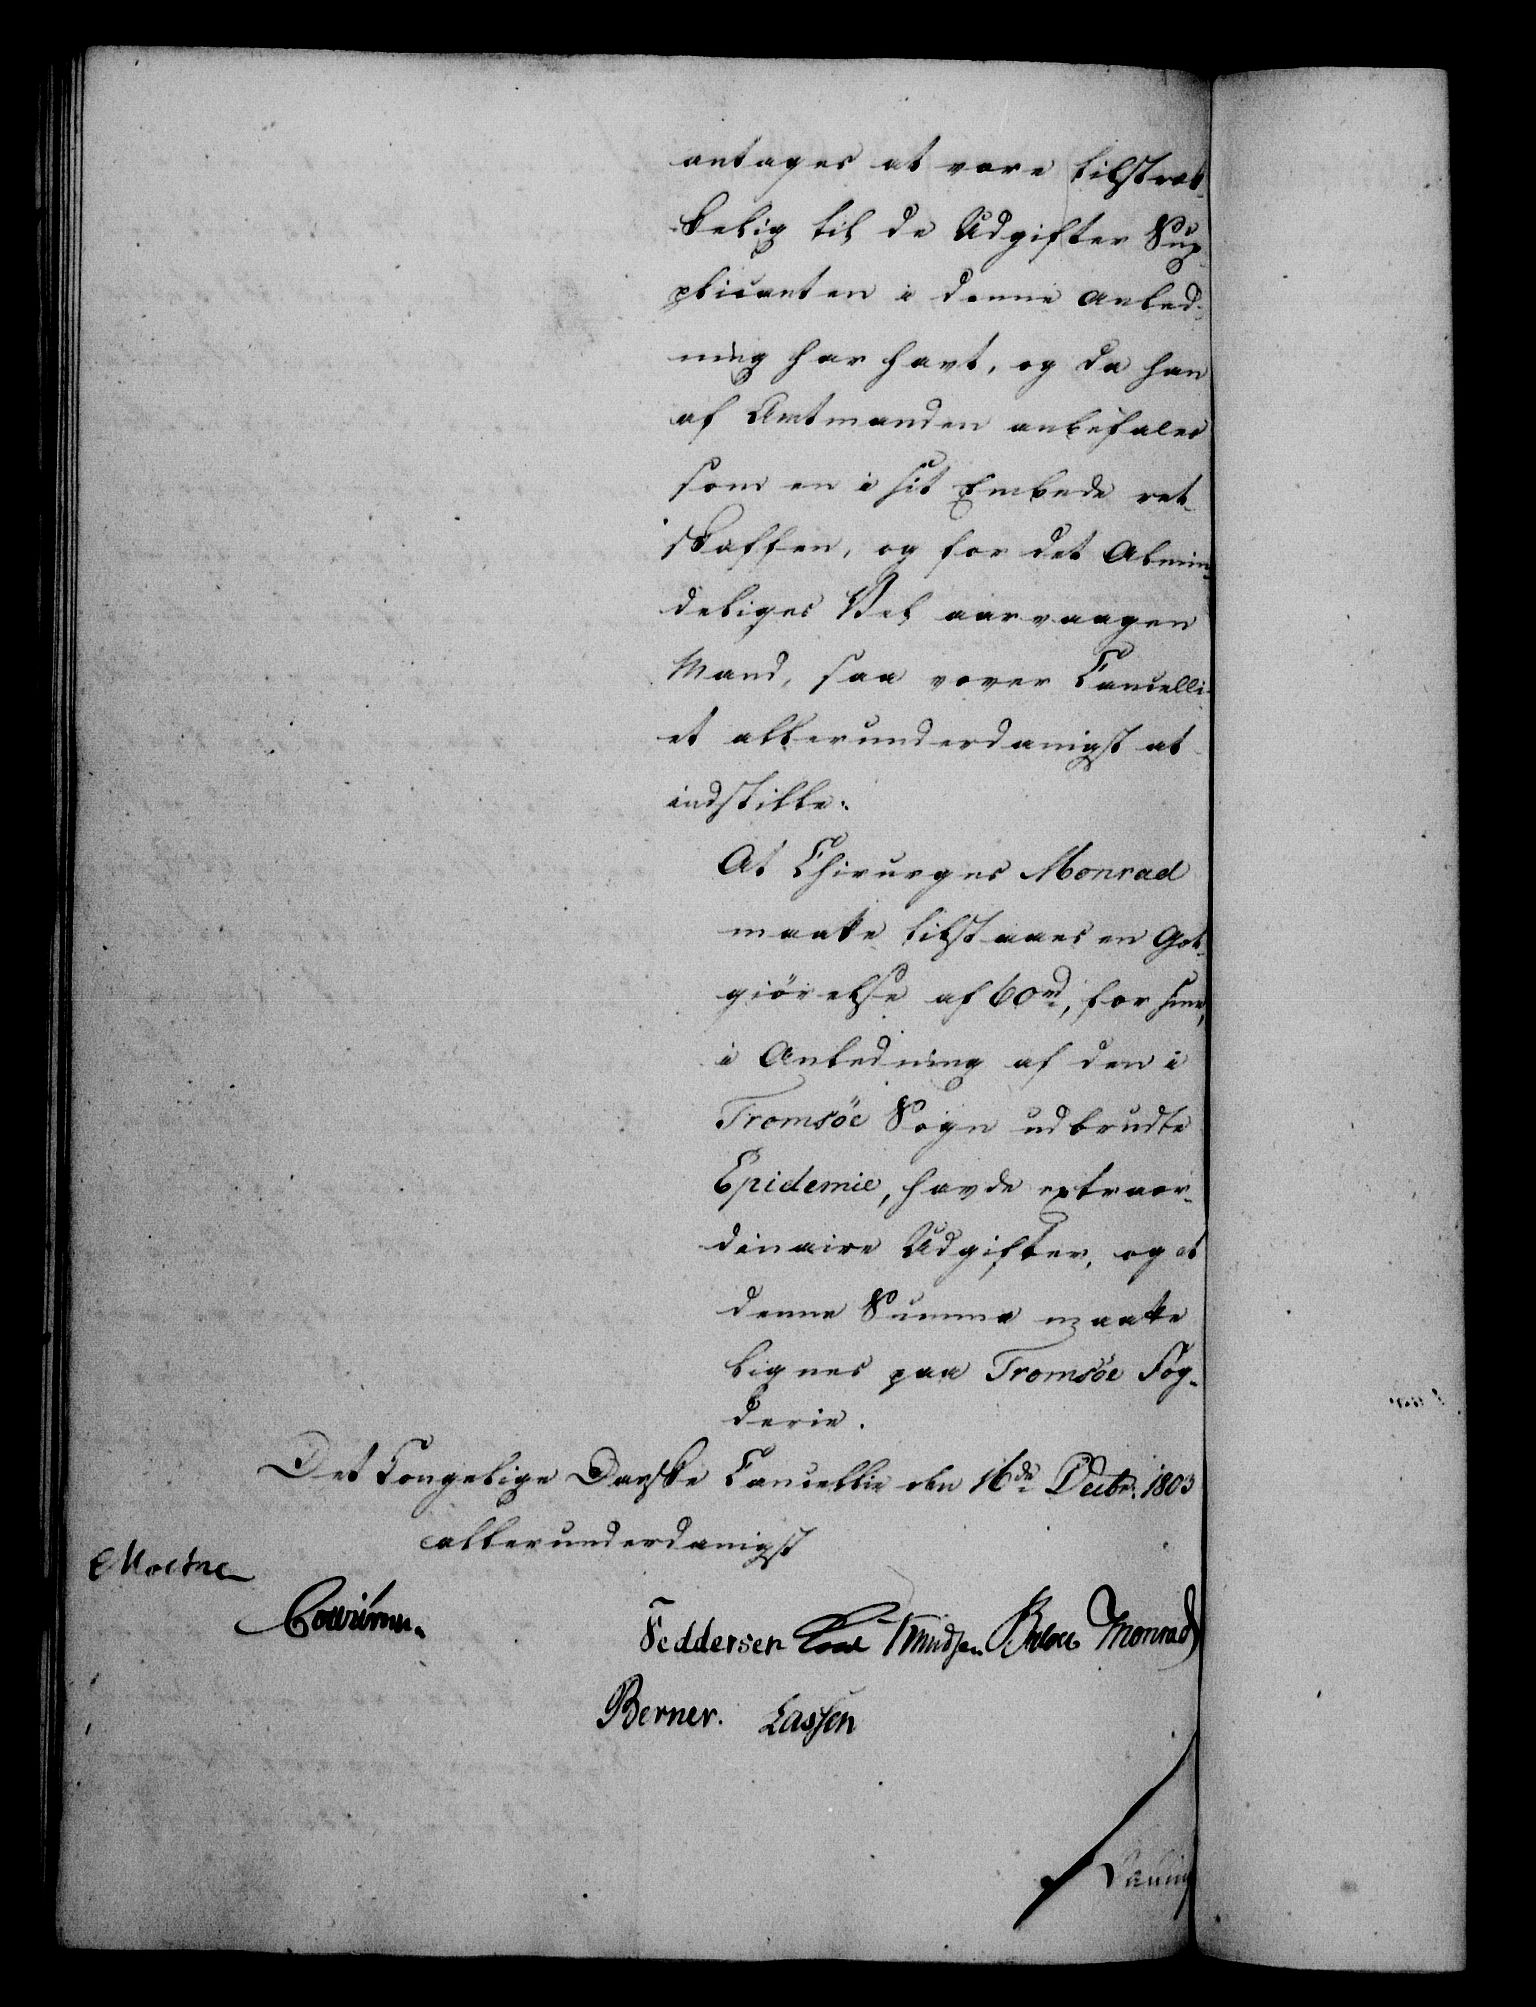 antages at være tilstræk-
kelig til de Udgifter Sup-
plicanten i denne Anled-
ning har havt, og da han
af Amtmanden anbefales
som en i sit Embede ret-
skaffen, og for det Almin-
deliges Vel aarvaagen
Mand, saa vover Cancelli-
et allerunderdanigst at
indstille:
At Chirurgus Monrad
maatte tilstaaes en Got-
giörelse af 60 rd, for sine,
i Anledning af den i
Tromsöe Sogn udbrudte
Epidemie, havde extraor-
dinaire Udgifter, og at
denne Summa maatte
lignes paa Tromsöe Fog-
derie.
Det Kongelige Danske Cancellie den 16de Decbr. 1803
allerunderdanigst
Moltke
Feddersen Knudsen Bülow Monrad
Berner. Lassen